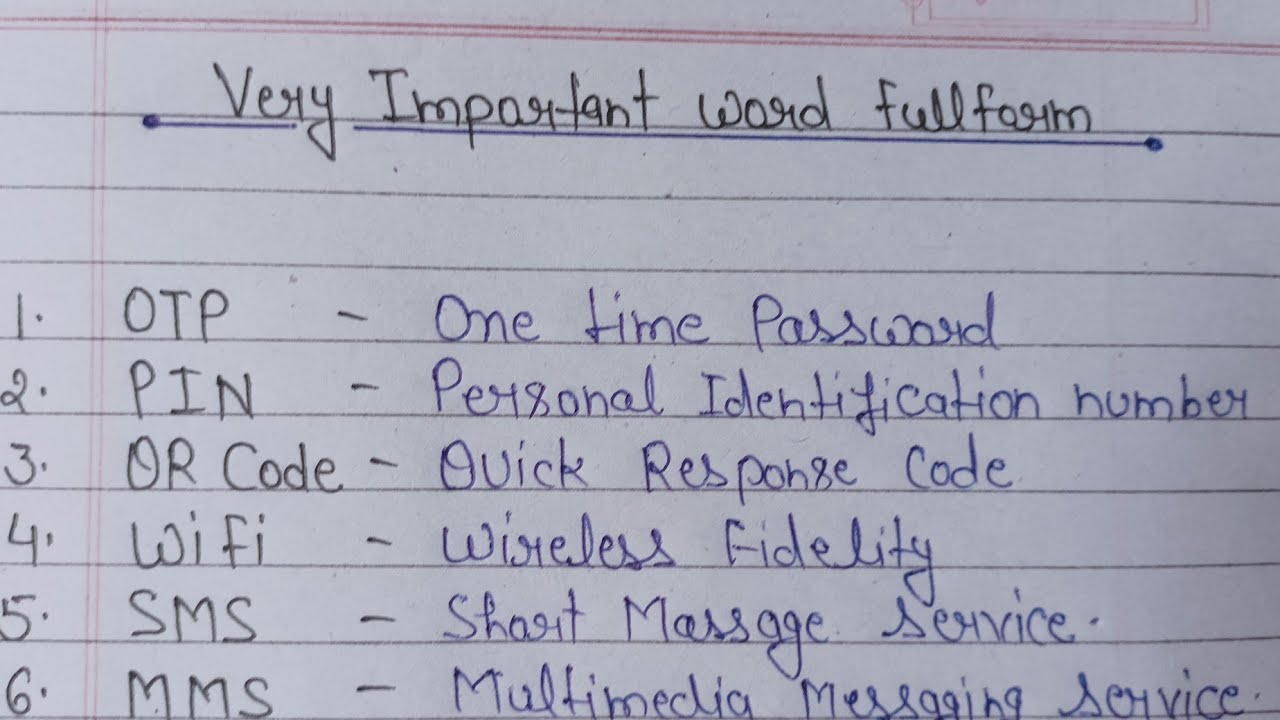 Very Important word fullform
1. OTP - One time Password
2. PIN - Personal Identification number
3. QR Code - Quick Response Code
4. WiFi - Wireless Fidelity
5. SMS - Short Massage Service.
6. MMS - Multimedia Messaging Service.